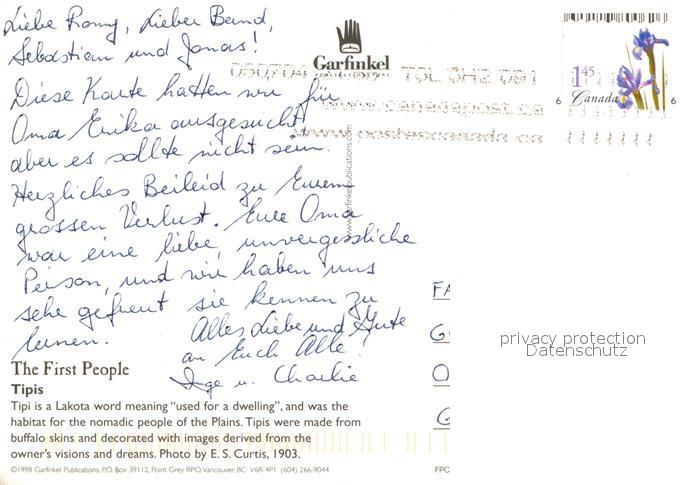 Liebe Romy, Lieber Bernd,
Sebastian und Jonas!
Diese Karte hatten wir für
Oma Erika ausgesucht
aber es sollte nicht sein.
Herzliches Beileid zu Eurem
grossen Verlust. Eure Oma
war eine liebe, unvergessliche
Person, und wir haben uns
sehr gefreut sie kennen zu
lernen.
Alles Liebe und Gute
an Euch Alle!
Inge u. Charlie
The First People
Tipis
Tipi is a Lakota word meaning “used for a dwelling”, and was the
habitat for the nomadic people of the Plains. Tipis were made from
buffalo skins and decorated with images derived from the
owner's visions and dreams. Photo by E. S. Curtis, 1903.
©1998 Garfinkel Publications, P.O. Box 39112, Point Grey RPO, Vancouver, BC V6R 4P1 (604) 266-9044
FPC
Garfinkel
PUBLICATIONS
www.garfinkelpublications.com
www.canadapost.ca
www.postescanada.ca
1.45
Canada
6 6
FA
G
O
G
privacy protection
Datenschutz